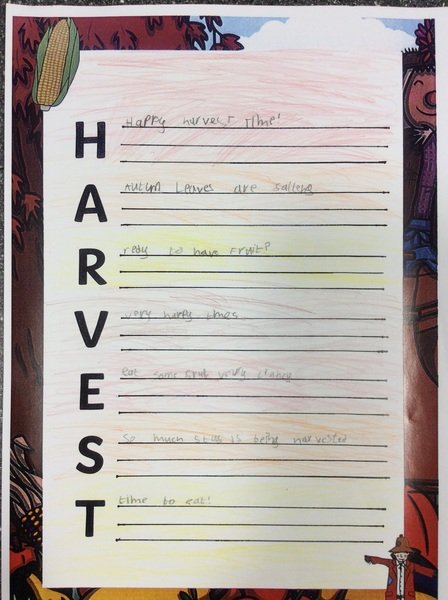 H Happy harvest time!
A Autum Leaves are falleng
R redy to have fruit?
V very happy times
E eat some fruit very
S So much stuf is being harvested
T time to eat!